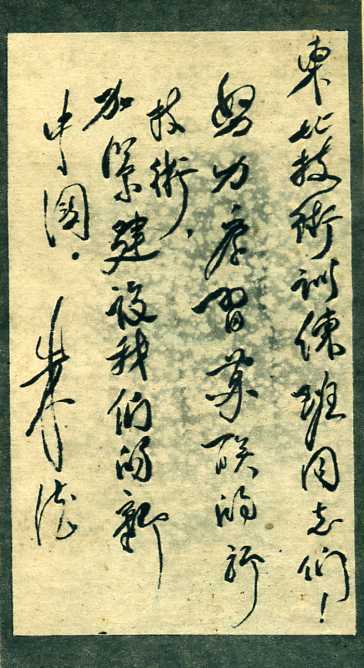 東北技術训練班同志们！
努力学習苏联的新
技術，
加緊建设我们的新
中國。
朱德